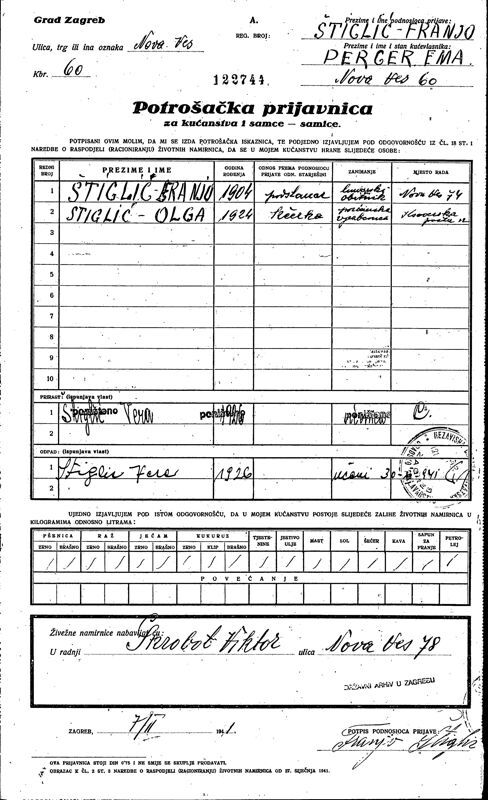 Grad Zagreb
A.
Prezime i ime podnosioca prijave:
REG. BROJ:
ŠTIGLIĆ-FRANJO
Ulica, trg ili ina oznaka Nova Ves
Prezime i ime i stan kućevlasnika:
PERGER EMA
Kbr. 60
122744
Nova Ves 60
Potrošačka prijavnica
za kućanstva i samce — samice.
POTPISANI OVIM MOLIM, DA MI SE IZDA POTROŠAČKA ISKAZNICA, TE PODJEDNO IZJAVLJUJEM POD ODGOVORNOŠĆU IZ ČL. 18 ST. 1
NAREDBE O RASPODJELI (RACIONIRANJU) ŽIVOTNIH NAMIRNICA, DA SE U MOJEM KUĆANSTVU HRANE SLIJEDEĆE OSOBE:
REDNI BROJ PREZIME I IME GODINA ROĐENJA ODNOS PREMA PODNOSIOCU PRIJAVE ODN. STARJEŠINI ZANIMANJE MJESTO RADA
1 ŠTIGLIĆ-FRANJO 1904 podstanar obrtnik Nova Ves 74
2 ŠTIGLIĆ - OLGA 1924 kćerka
3
4
5
6
7
8
9
10
PRIRAST: (ispunjava vlast)
1 Štiglić Vera poništeno 1926 poništeno
2
ODPAD: (ispunjava vlast)
1 Štiglić Vera 1926 učeni 30-
2
UJEDNO IZJAVLJUJEM POD ISTOM ODGOVORNOŠĆU, DA U MOJEM KUĆANSTVU POSTOJE SLIJEDEĆE ZALIHE ŽIVOTNIH NAMIRNICA U
KILOGRAMIMA ODNOSNO LITRAMA:
PŠENICA RAŽ JEČAM KUKURUZ TJESTENINE JESTIVO ULJE MAST SOL ŠEĆER KAVA SAPUN ZA PRANJE PETROLEJ
ZRNO BRAŠNO ZRNO BRAŠNO ZRNO BRAŠNO ZRNO KLIP BRAŠNO
/ / / / / / / / / / / / / / / / /
POVEĆANJE
Živežne namirnice nabavljat ću:
U radnji Škrobot Viktor ulica Nova Ves 78
DRŽAVNI ARHIV U ZAGREBU
ZAGREB, 7/II 1941.
POTPIS PODNOSIOCA PRIJAVE:
Franjo Štiglić
OVA PRIJAVNICA STOJI DIN 0'75 I NE SMIJE SE SKUPLJE PRODAVATI.
OBRAZAC K ČL. 2 ST. 2 NAREDBE O RASPODJELI (RACIONIRANJU) ŽIVOTNIH NAMIRNICA OD 27. SIJEČNJA 1941.